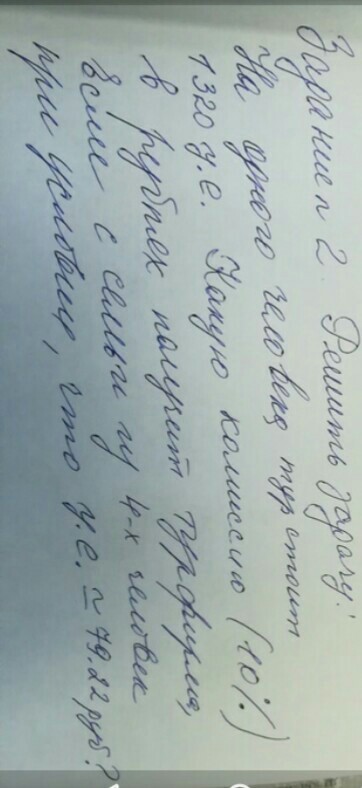 Задание n 2. Решить задачу:
На одного человека тур стоит
1320 у.е. Какую комиссию (10%)
в рублях получит турфирма,
Если с семьи из 4-х человек
при условии, что у.е. = 79.22 руб?